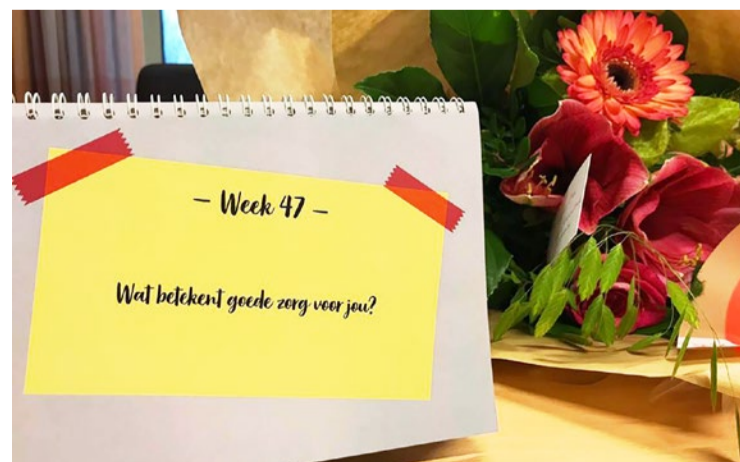 – Week 47 –
Wat betekent goede zorg voor jou?